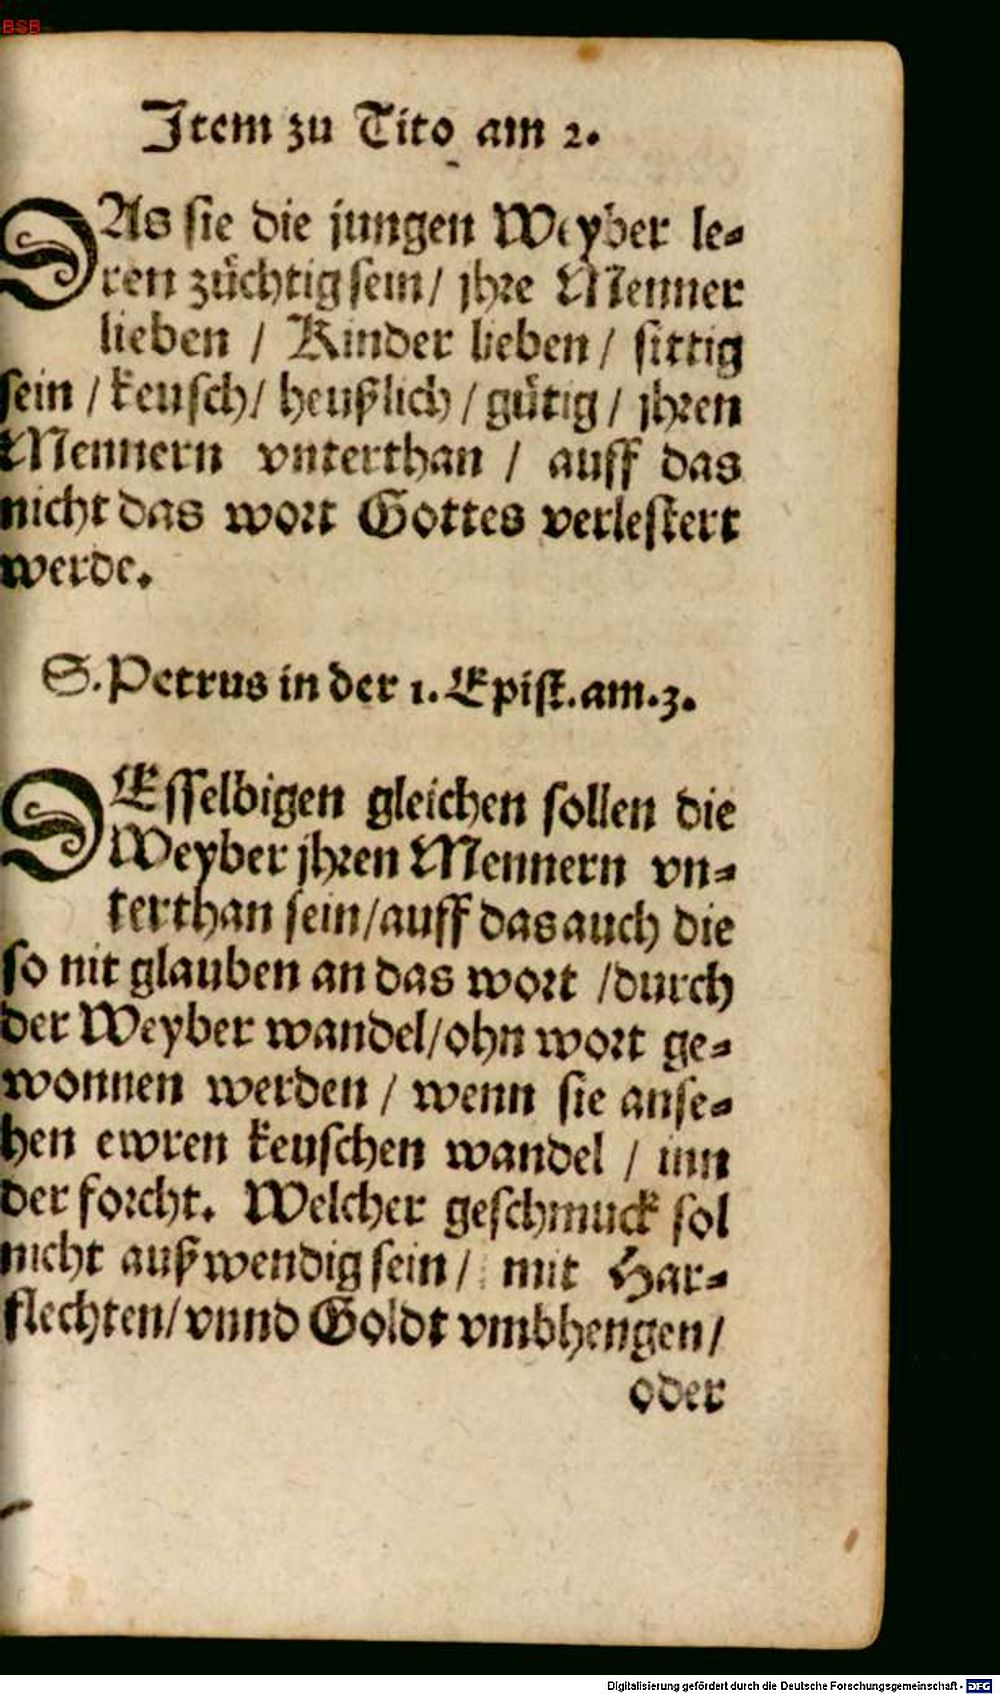 BSB
Item zu Tito am 2.
DAs sie die jungen Weyber le-
ren züchtig sein/ jhre Menner
lieben / Kinder lieben / sittig
sein / keusch/ heußlich / gütig / jhren
Mennern vnterthan / auff das
nicht das wort Gottes verlestert
werde.
S. Petrus in der 1. Epist. am. 3.
DEsselbigen gleichen sollen die
Weyber jhren Mennern vn-
terthan sein/auff das auch die
so nit glauben an das wort /durch
der Weyber wandel/ohn wort ge-
wonnen werden / wenn sie anse-
hen ewren keuschen wandel / inn
der forcht. Welcher geschmuck sol
nicht außwendig sein / mit Har-
flechten/vnnd Goldt vmbhengen/
oder
Digitalisierung gefördert durch die Deutsche Forschungsgemeinschaft - DFG